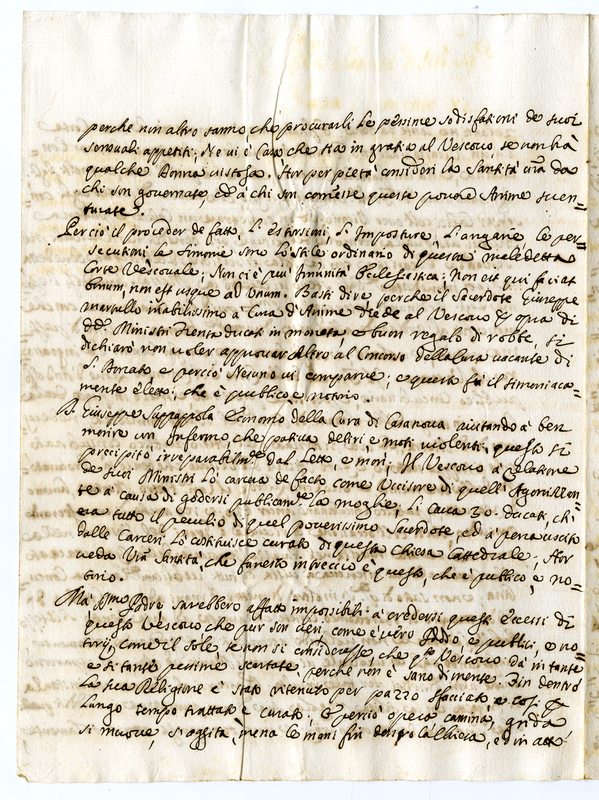 perche non altro sanno che procurarli le pessime sodisfationi de suoi
sensuali appetiti; Ne vi è Casa che stia in gratia al Vescovo se non hà
qualche Donna vistosa. Hor per pietà consideri la Santità v̄ra da
chi son governate, et à chi son com̄esse queste povere Anime sven=
turate.
Perciò il proceder de fatto, l'estorsioni, l'Imposture, l'angarie, le per=
secutioni le simonie sono lo stile ordinario di questa maledetta
Corte Vescovale; Non ci è più Im̄unità Ecclesiastica; Non est qui faciat
bonum, non est usque ad Unum. Basti dire, perche il Sacerdote Giuseppe
inabilissimo a Cura d'Anime diede al Vescovo opra di
dd.i Ministri trenta ducati in moneta, e buon regalo di robbe, si
dichiarò non voler approvar altro al Concorso della Cura vacante di
S. Donato e perciò Nesuno vi comparve; e questo fù il simoniaca=
mente eletto; che è publico e notorio.
D. Giuseppe Economo della Cura di Casanova aiutando à ben
morire un Infermo che pativa deliri e moti violenti, questo si
precipitò irreparabilm.te dal Letto, e morì. Il Vescovo à relatione
de suoi Ministri lo carcera de facto come Uccisore di quell'Agonizzan=
te a causa di godersi publicam.te la moglie, li cava 30. ducati, ch'
era tutto il peculio di quel poverissimo Sacerdote, ed à pena uscito
dalle Carceri lo costituisce curato di questa Chiesa Cattedrale; Hor
veda V̄ra Santità, che funesto intreccio è questo, che è publico, e no=
torio.
Mà B.mo Padre sarebbero affatto impossibili à credersi questi eccessi di
questo Vescovo che pur son veri, come è vero Iddio, e publici, e no=
torij, come il sole, se non si considerasse, che q.to Vescovo dà in tante
e si tante pessime scartate, perche non è sano di mente. Fin dentro
la sua Religione è stato ritenuto per pazzo sfacciato, e così
lungo tempo trattato e curato; e perciò opera, camina, grida
si muove, s'aggita, mena le mani fin dentro la Chiesa, ed in atto